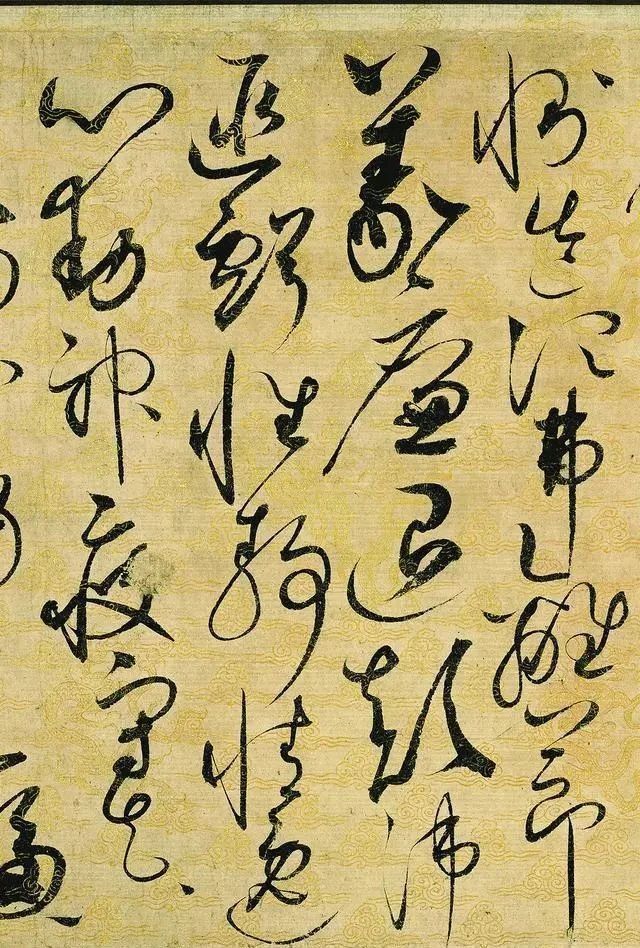 惻造次弗離節
義廉退顛沛
匪虧性靜情逸
心動神疲守真